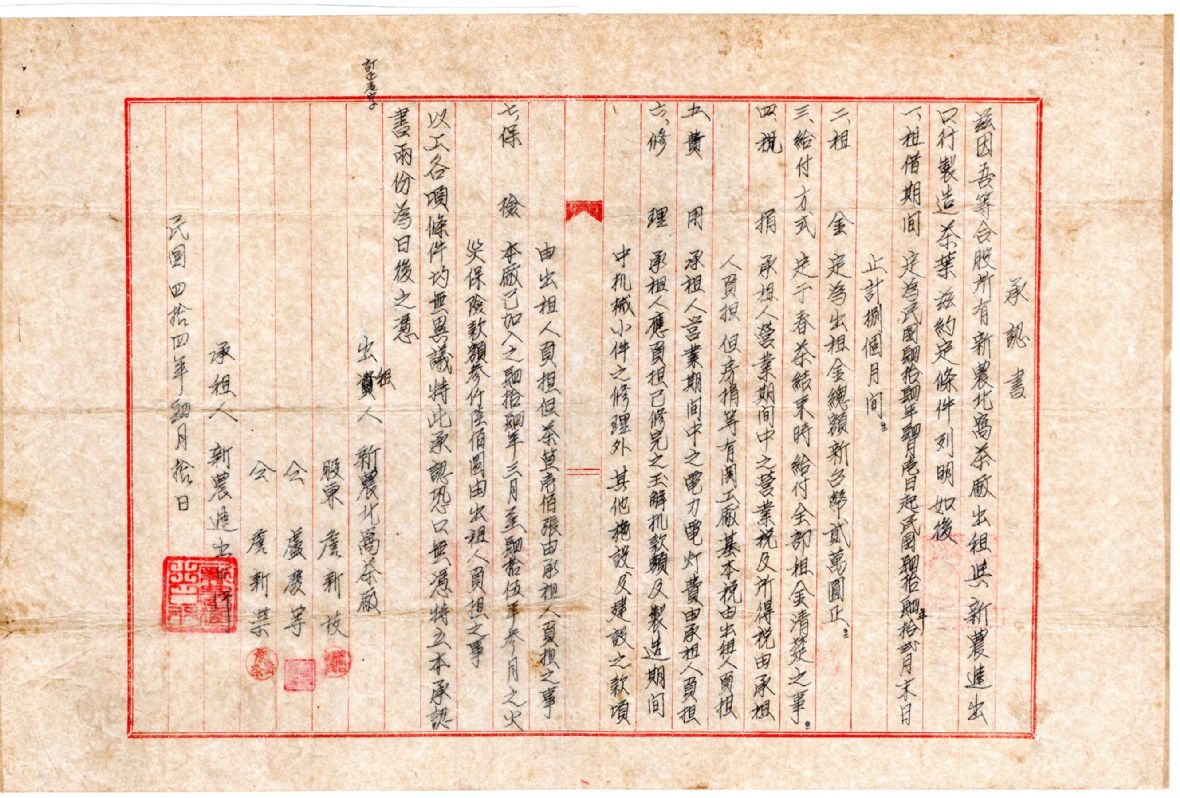 承認書
茲因吾等合股所有新農北窩茶廠出租與新農進出
口行製造茶葉茲約定條件列明如後
一、租借期间 定為民國肆拾肆年肆月壱日起民國肆拾肆年拾弍月末日
止計捌個月间。
二、租金 定為出租金總額新台幣貳萬圓正。
三、給付方式 定于春茶結束時給付全部租金清楚之事。
四、稅捐 承租人營業期间中之營業稅及所得稅由承租
人負担 但房捐等有関工廠基本稅由出租人負担
五、費用 承租人営業期间中之電力電灯費由承租人負担
六、修理 承租人應負担已修完之玉解机款額及製造期间
中机械小件之修理外 其他施設及建設之款項
由出租人負担但茶萓壱佰張由承租人負担之事
七、保險 本廠已加入之肆拾肆年三月至肆拾伍年参月之火
災保險款額参仟陸佰圓由出租人負担之事
以上各項條件均無異議特此承認恐口無憑特立本承認
書兩份為日後之憑
訂正壱字
出租人 新農北窩茶廠
股東 詹新枝
仝 盧慶等
仝 詹新業
承租人 新農進出口行
民國四拾四年肆月拾日